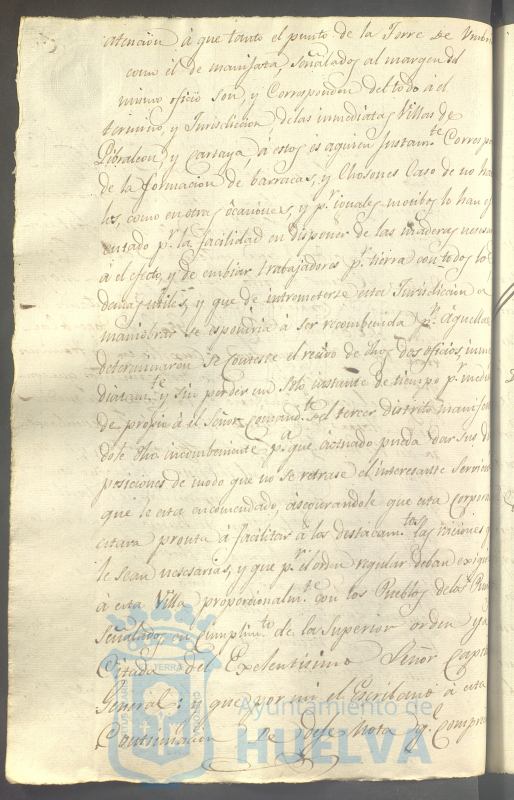 atencion à que tanto el punto de la Torre de Umbri
como el de manifata Señalados al margen del
mismo oficio son, y Corresponden del todo à el
termino, y Jurisdicion de las inmediatas Villas de
Gibraleon, y Cartaya, á estos es aquien Justam.te Corresp
de la formacion de barracas, y Chosones Caso de no ha
les, como en otras ôcaciones, y p.r iguales motibos lo han
cutado p.r la facilidad en disponer de las maderas necesa
á el efecto, y de embiar trabajadores p.r tierra con todos lo
demas utiles, y que de intrometerse esta Jurisdicion a
maniobrar se espondria á ser recombenida p.r aquellas
determinaron se conteste el recivo de dhos dos oficios, inme
diatam.te y sin perder un solo instante de tiempo p.r medio
de propio á el Señor Comand.te del tercer distrito manifes
dole dho incombeniente p.a que actuado pueda dar sus dis
posiciones de modo que no se retrase el interesante Servicio
que le esta encomendado, ásegurandole que esta Corpora
estara pronta á facilitar á los destacam.tos las raciones q
le sean nesesarias, y que p.r el orden regular deban exigir
á esta Villa proporcionalm.te con los Pueblos de los
Señalados en Cumplim.to de la Superior orden ya
Citada del Exelentisimo Señor Capit
General: y que por mi el Escribano á esta
Continuacion se deje Nota q. Compre
Ayuntamiento de
HUELVA